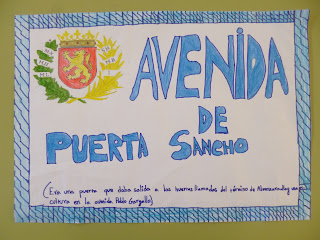 AVENIDA
DE
PUERTA SANCHO
(Era una puerta que daba salida a las huertas llamadas del término de
cultura en la avenida Pablo Gargallo)